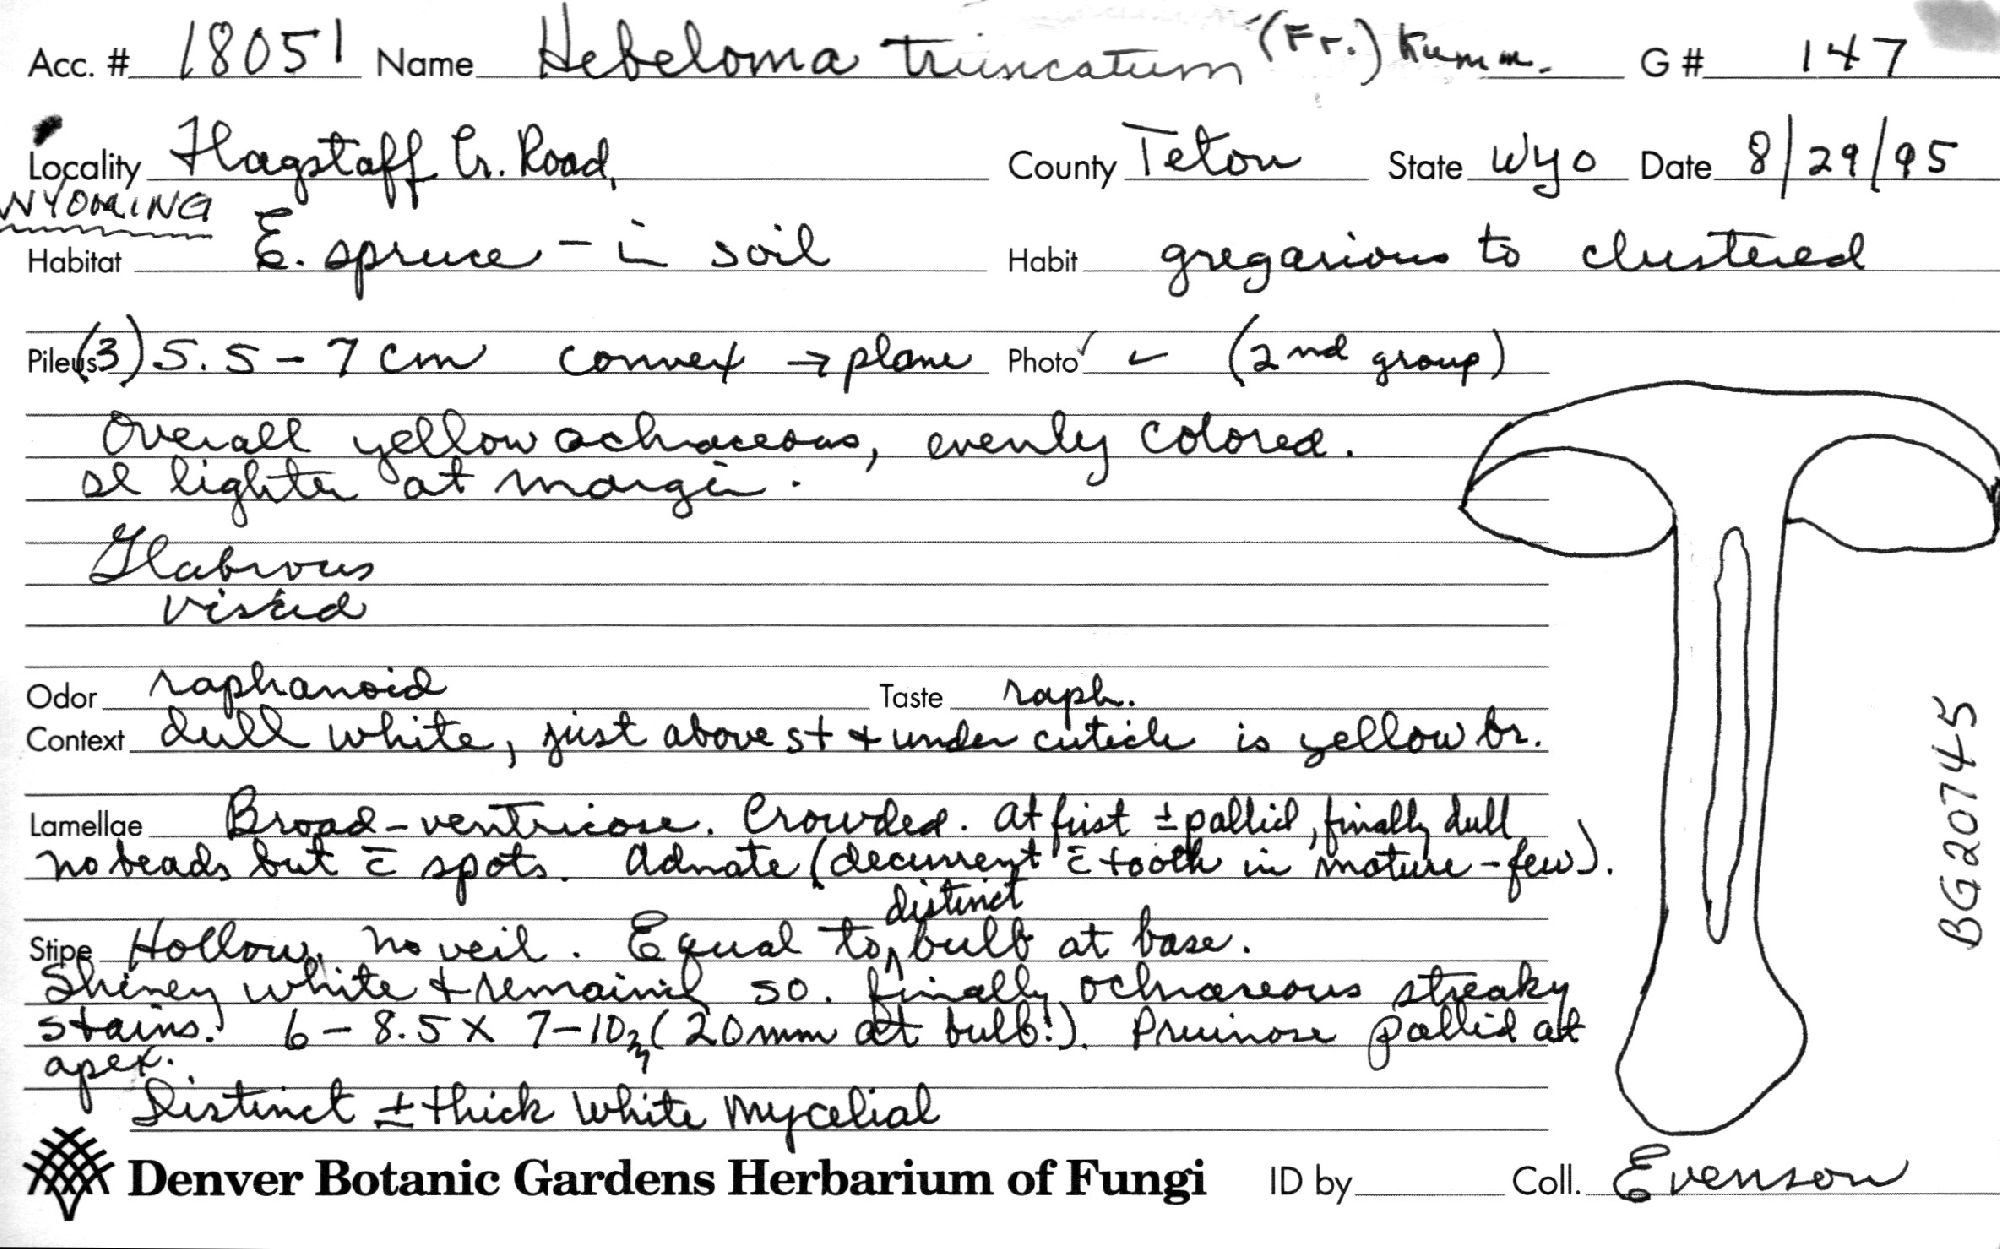 Acc. # 18051 Name Hebeloma truncatum (Fr.) Kumm. G # 147
Locality Flagstaff Cr. Road, County Teton State Wyo Date 8/29/95
WYOMING
Habitat E. spruce - in soil Habit gregarious to clustered
Pileus (3) 5.5 - 7 cm convex → plane Photo ✓ ✓ (2nd group)
Overall yellow ochraceous, evenly colored.
sl lighter at margin.
Glabrous
viscid
Odor raphanoid Taste raph.
Context dull white, just above st + under cuticle is yellow br.
Lamellae Broad-ventricose. Crowded. At first ± pallid, finally dull
no beads but c̄ spots. Adnate (decurrent c̄ tooth in mature - few).
distinct
Stipe Hollow, no veil. Equal to ^ bulb at base.
Shiney white + remaining so. finally ochraceous streaky
stains. 6 - 8.5 x 7-10 (20mm at bulb!). Pruinose pallid at
apex.
Distinct ± thick white mycelial
Denver Botanic Gardens Herbarium of Fungi ID by Coll. Evenson
BG20745